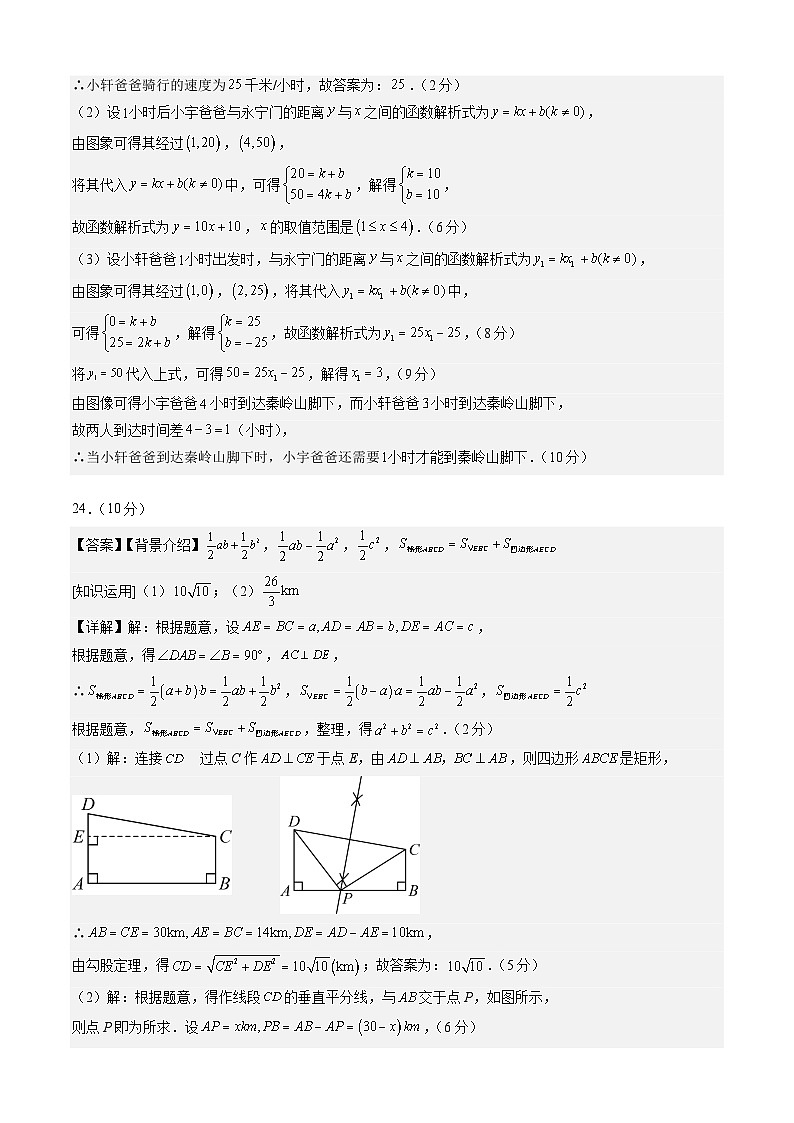 ∴小轩爸爸骑行的速度为25千米/小时，故答案为：25.（2分）
（2）设1小时后小宇爸爸与永宁门的距离y与x之间的函数解析式为y = kx + b(k ≠ 0)，
由图象可得其经过(1,20)，(4,50)，
将其代入y = kx + b(k ≠ 0)中，可得{20 = k + b 50 = 4k + b，解得{k = 10 b = 10，
故函数解析式为y = 10x + 10，x的取值范围是(1 ≤ x ≤ 4).（6分）
（3）设小轩爸爸1小时出发时，与永宁门的距离y与x之间的函数解析式为y₁ = kx₁ + b(k ≠ 0)，
由图象可得其经过(1,0)，(2,25)，将其代入y₁ = kx₁ + b(k ≠ 0)中，
可得{0 = k + b 25 = 2k + b，解得{k = 25 b = −25，故函数解析式为y₁ = 25x₁ − 25，（8分）
将y₁ = 50代入上式，可得50 = 25x₁ − 25，解得x₁ = 3，（9分）
由图像可得小宇爸爸4小时到达秦岭山脚下，而小轩爸爸3小时到达秦岭山脚下，
故两人到达时间差4 − 3 = 1（小时），
∴当小轩爸爸到达秦岭山脚下时，小宇爸爸还需要1小时才能到秦岭山脚下.（10分）
24.（10分）
【答案】【背景介绍】1/2ab + 1/2b²，1/2ab − 1/2a²，1/2c²，S梯形ABCD = SVEBC + S四边形AECD
[知识运用]（1）10√10；（2）26/3km
【详解】解：根据题意，设AE = BC = a, AD = AB = b, DE = AC = c，
根据题意，得∠DAB = ∠B = 90°，AC ⊥ DE，
∴S梯形ABCD = 1/2(a + b)·b = 1/2ab + 1/2b²，SVEBC = 1/2(b − a)·a = 1/2ab − 1/2a²，S四边形AECD = 1/2c²
根据题意，S梯形ABCD = SVEBC + S四边形AECD，整理，得a² + b² = c².（2分）
（1）解：连接CD 过点C作AD ⊥ CE于点E，由AD ⊥ AB，BC ⊥ AB，则四边形ABCE是矩形，
D
E
C
A
B
D
C
A
P
B
∴AB = CE = 30km, AE = BC = 14km, DE = AD − AE = 10km，
由勾股定理，得CD = √CE² + DE² = 10√10(km)；故答案为：10√10.（5分）
（2）解：根据题意，得作线段CD的垂直平分线，与AB交于点P，如图所示，
则点P即为所求．设AP = xkm, PB = AB − AP = (30 − x)km，（6分）